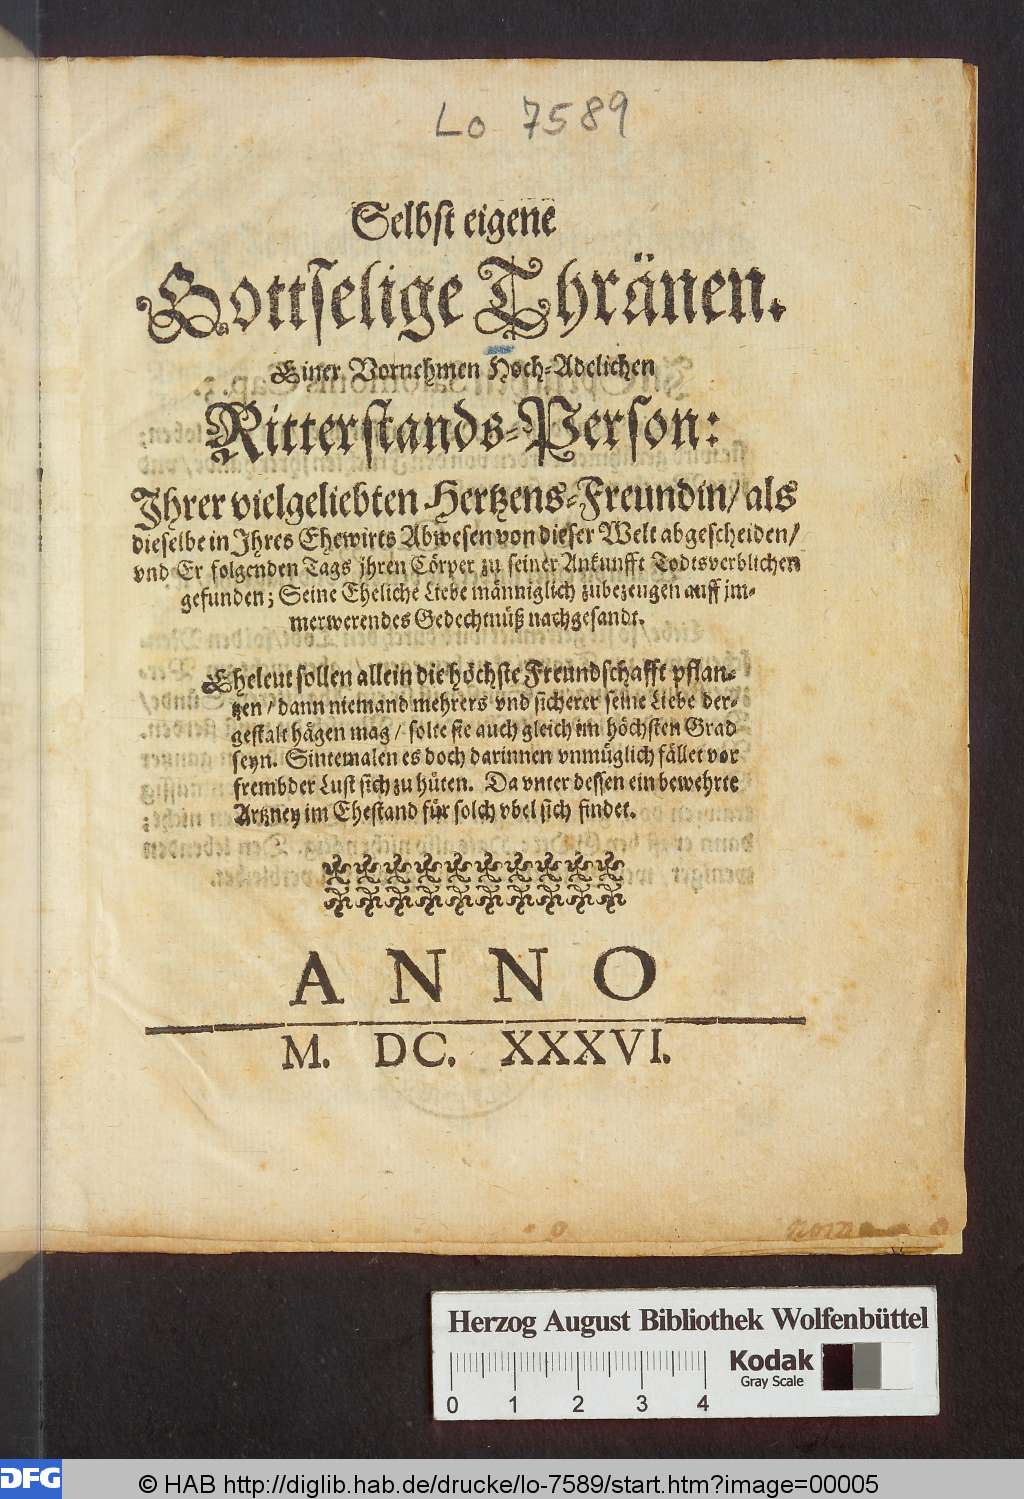 Lo 7589
Selbst eigene
Gottselige Thränen.
Einer Vornehmen Hoch-Adelichen
Ritterstands-Person:
Ihrer vielgeliebten Hertzens-Freundin/ als
dieselbe in Ihres Ehewirts Abwesen von dieser Welt abgescheiden/
vnd Er folgenden Tags jhren Cörper zu seiner Ankunfft Todtsverblichen
gefunden; Seine Eheliche Liebe männiglich zubezeugen auff jm-
merwerendes Gedechtnüß nachgesandt.
Eheleut sollen allein die höchste Freundschafft pflan-
tzen/ dann niemand mehrers vnd sicherer seine Liebe der-
gestalt hägen mag/ solte sie auch gleich im höchsten Grad
seyn. Sintemalen es doch darinnen vnmüglich fället vor
frembder Lust sich zu hüten. Da vnter dessen ein bewehrte
Artzney im Ehestand für solch vbel sich findet.
ANNO
M. DC. XXXVI.
Herzog August Bibliothek Wolfenbüttel
Kodak
Gray Scale
0 1 2 3 4
DFG
© HAB http://diglib.hab.de/drucke/lo-7589/start.htm?image=00005